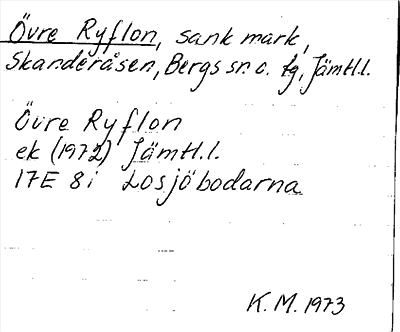 Övre Ryflon, sank mark,
Skanderåsen, Bergs sn o. tg, Jämtl.l.
Övre Ryflon
ek (1972) Jämtl.l.
17E 8i Losjöbodarna
K.M. 1973